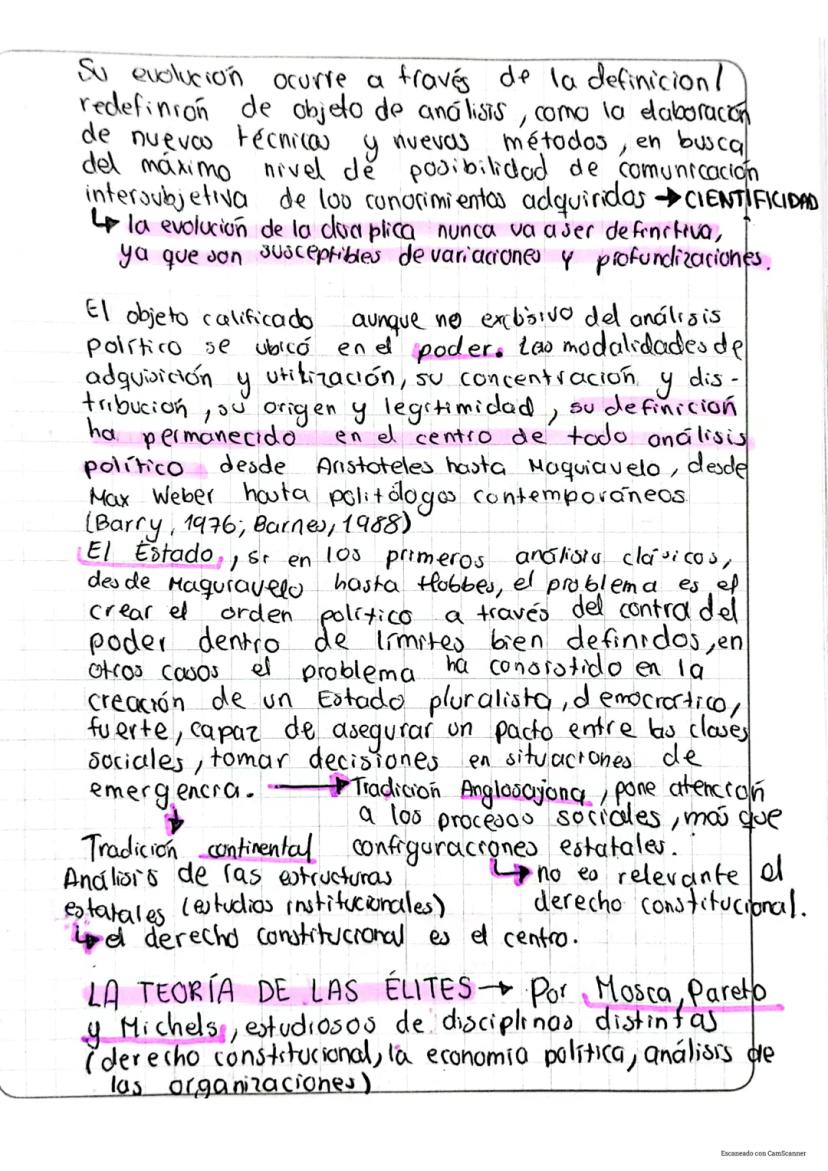 Su evolución ocurre a través de la definicion/
redefinión de objeto de análisis, como la elaboración
de nuevas técnicas y nuevos métodos, en busca
del máximo nivel de posibilidad de comunicación
intersubjetiva de los conocimientos adquiridos → CIENTIFICIDAD
↳ la evolución de la disciplica nunca va a ser definitiva,
ya que son susceptibles de variaciones y profundizaciones.
El objeto calificado aunque no exclusivo del análisis
político se ubicó en el poder. Las modalidades de
adquisición y utilización, su concentración y dis-
tribución, su origen y legitimidad, su definición
ha permanecido en el centro de todo análisis
político desde Aristoteles hasta Maquiavelo, desde
Max Weber hasta politólogos contemporáneos
(Barry, 1976; Barnes, 1988)
El Estado, si en los primeros análisis clásicos,
desde Maquiavelo hasta Hobbes, el problema es el
crear el orden político a través del contra del
poder dentro de límites bien definidos, en
otros casos el problema ha consistido en la
creación de un Estado pluralista, democrático,
fuerte, capaz de asegurar un pacto entre las clases
sociales, tomar decisiones en situaciones de
emergencia. → Tradición Anglosajona, pone atención
a los procesos sociales, más que
Tradición continental configuraciones estatales.
Análisis de las estructuras ↳ no es relevante el
estatales (estudios institucionales) derecho constitucional.
↳ el derecho constitucional es el centro.
LA TEORÍA DE LAS ÉLITES → Por Mosca, Pareto
y Michels, estudiosos de disciplinas distintas
(derecho constitucional, la economía política, análisis de
las organizaciones)
Escaneado con CamScanner